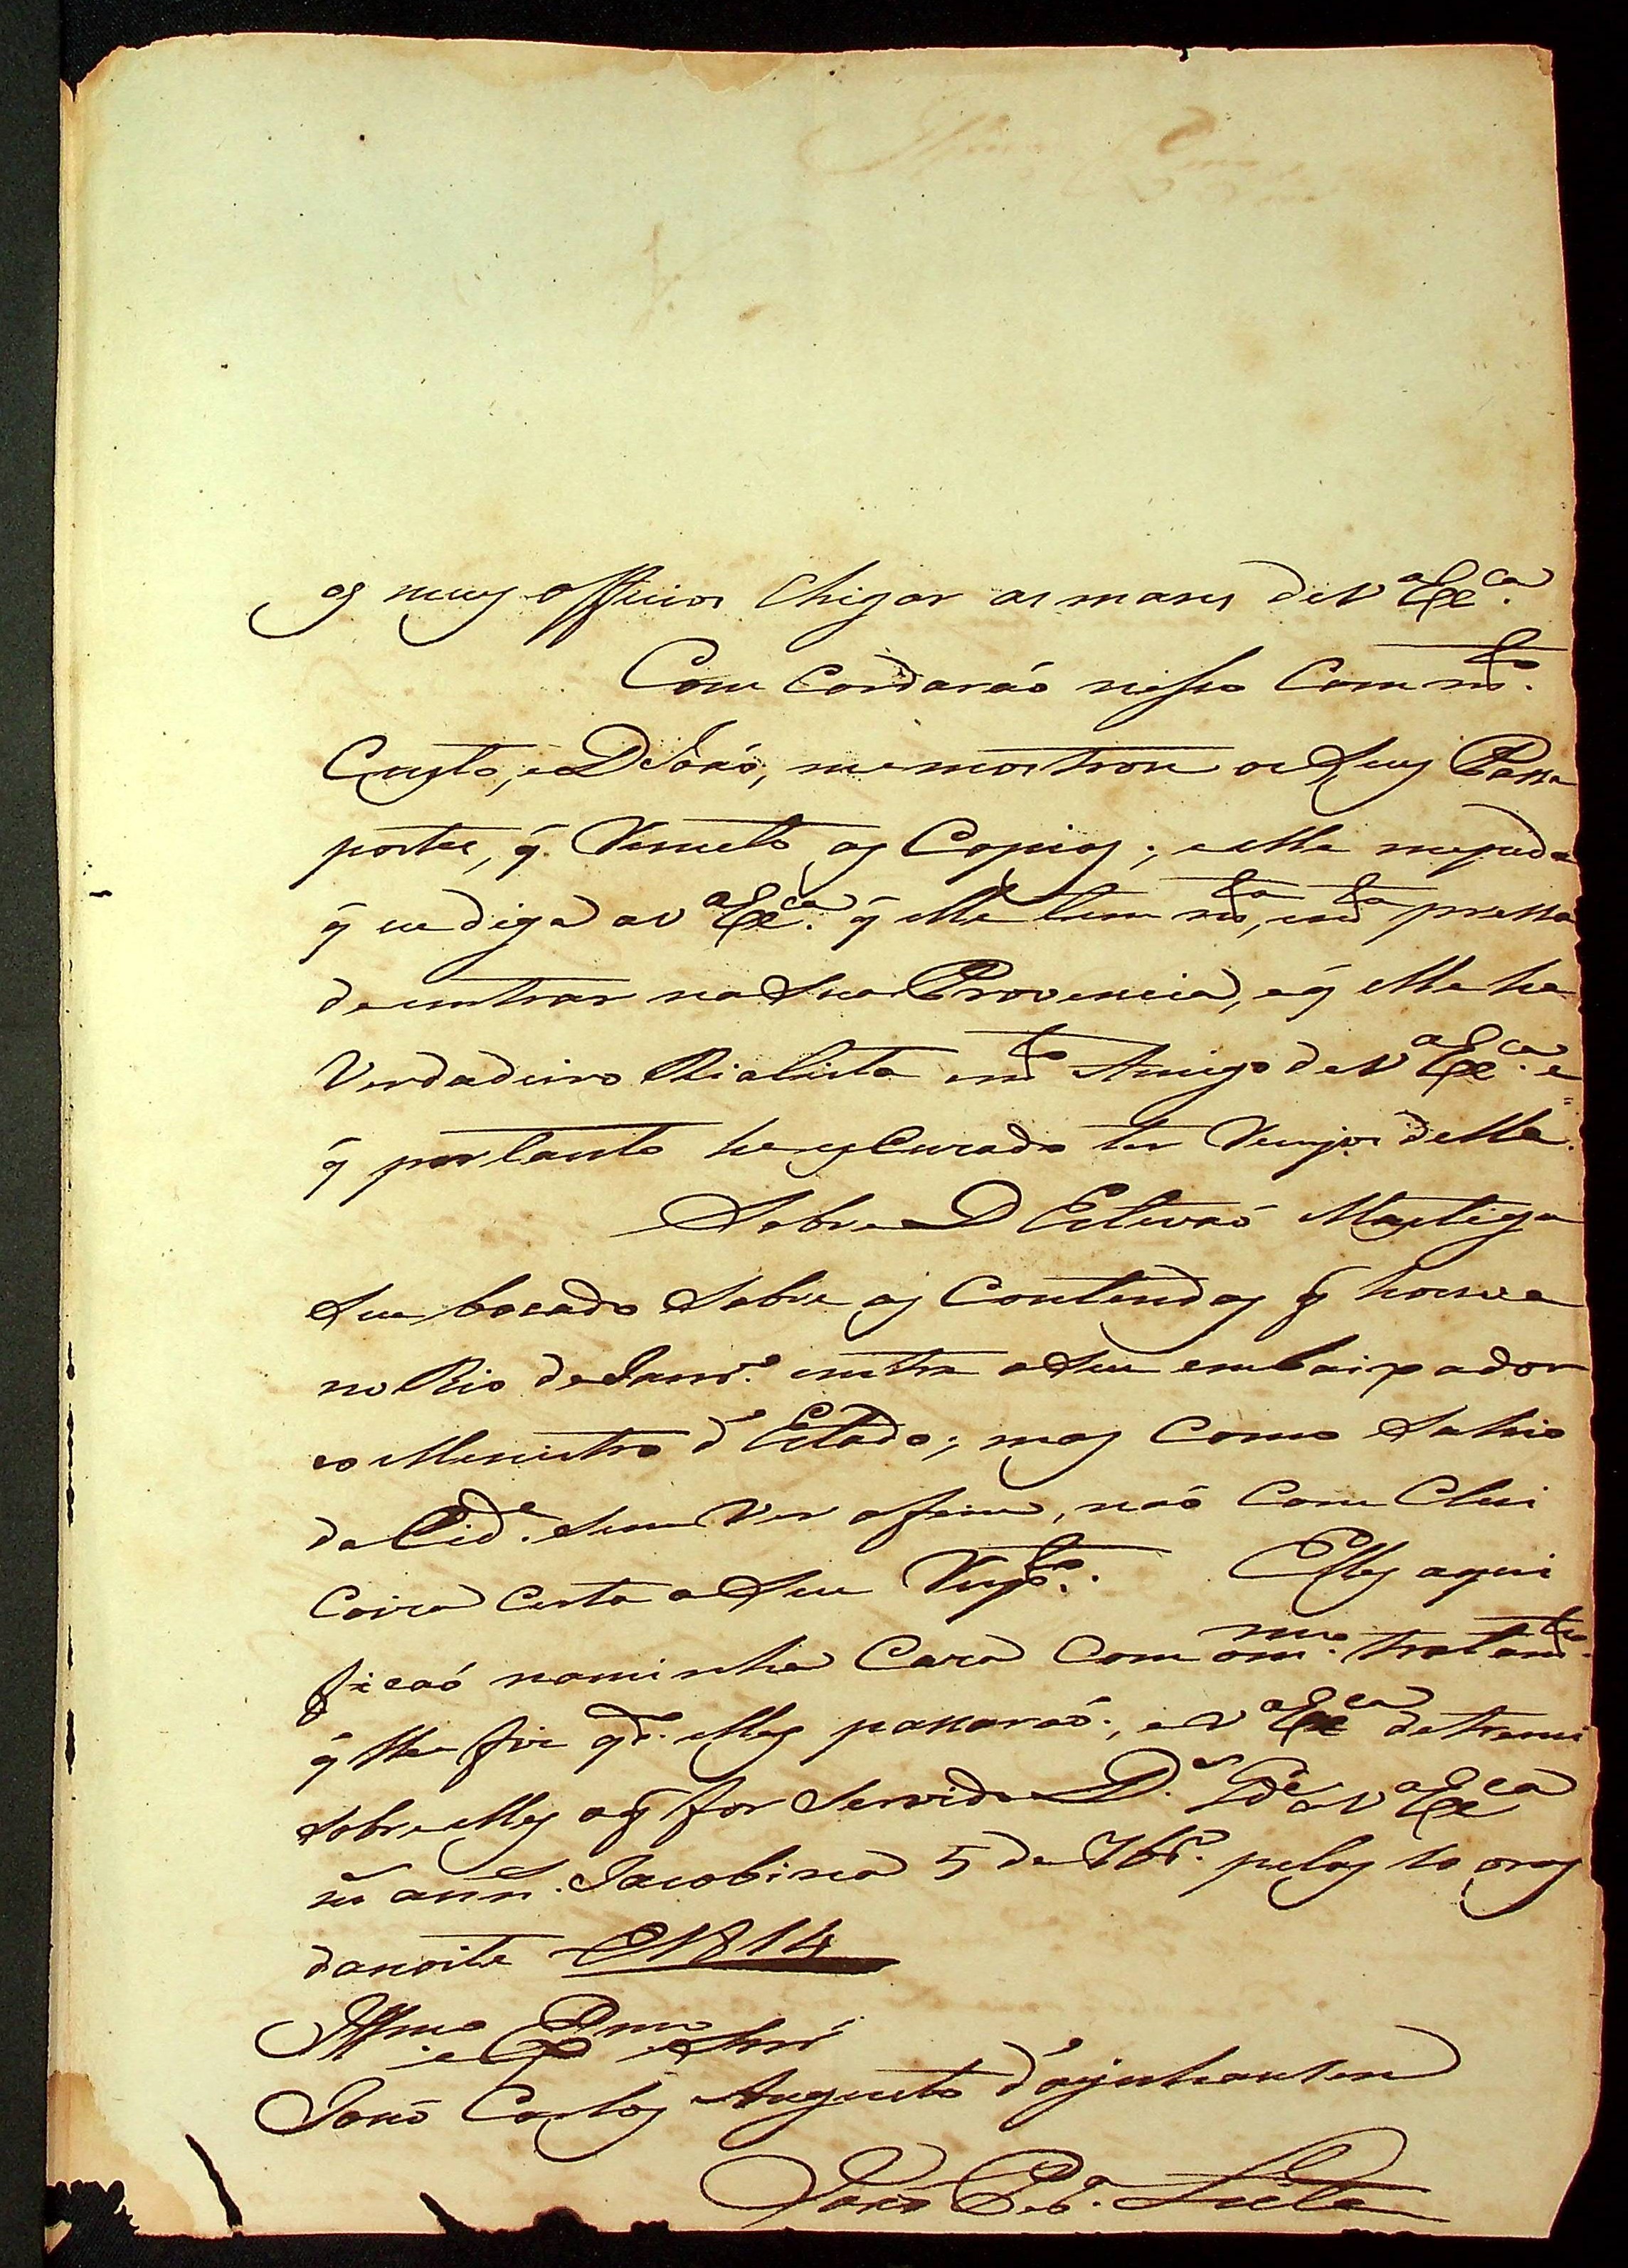 os meus officios Chegar as maos de V.ª Ex.ca
Com Cordaraó nisso Com m.to
Custo, e D Joaó, me mostrou os Seus Passa
portes, q̃. Remeto as Copias; e elle me pede
q̃ eu diga a V.ª Ex.ca q̃ elle tem m.ta, e m.ta pressa
de entrar na Sua Provencia, e q̃ elle he
Verdadeiro Rialista e m.to Amigo de V.ª Ex.ca e
q̃ portanto he escuzado ter Vigias delle.
Sobre D Estevaó Mastiga
Seu bocado Sobre as Contendas q̃ houve
no Rio de Janr.º entre o Seu embaixador
e o Menistro d'Estado; mas Como Sahio
da Cid.e Sem Ver o fim, naó Com Clui
Coiza Certa a Seu Resp.to. Elles aqui
ficaó na minha Caza Com o m.mo tratam.to
q̃ lhe fis qd.º elles passaraó; e V.ª Ex.ca detremi
Sobre elles o q̃ for Servido D.s G.de a V.ª Ex.ca
m.s ann.s. Jacobina 5 de 7br.º pelas 10 oras
da noite de 1814
Illmo e Exmo Snr̃
Joaõ Carlos Augusto d'Oyenhausen
Joaõ Per.ª Leite